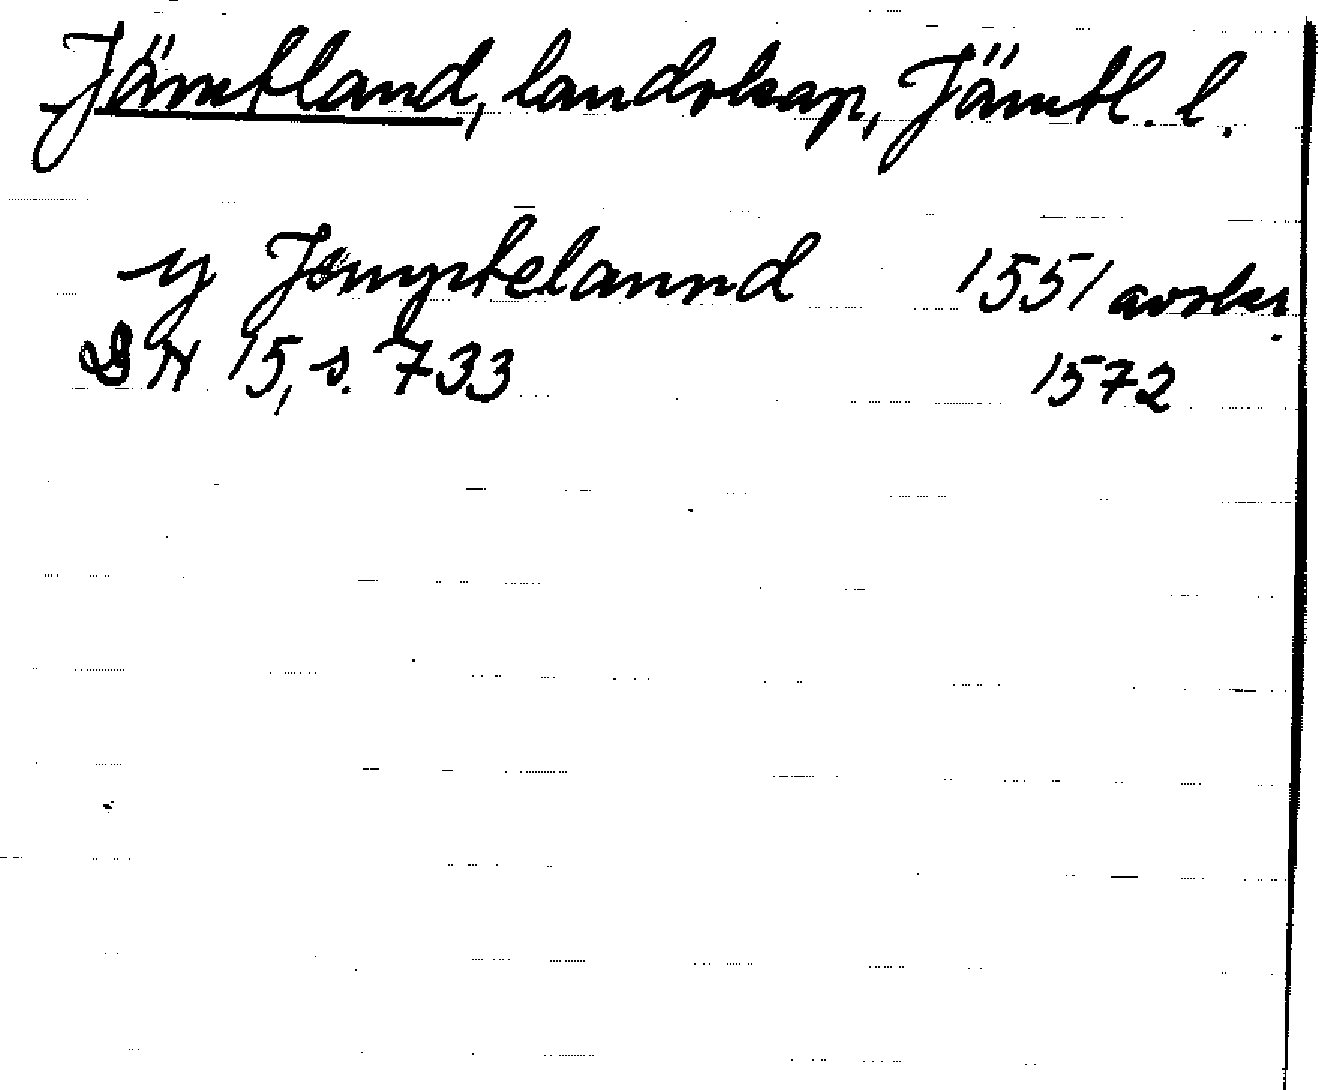 Jämtland, landskap, Jämtl. l.
y Jemptelannd 1551 avskr.
DN 15, s. 733 1572